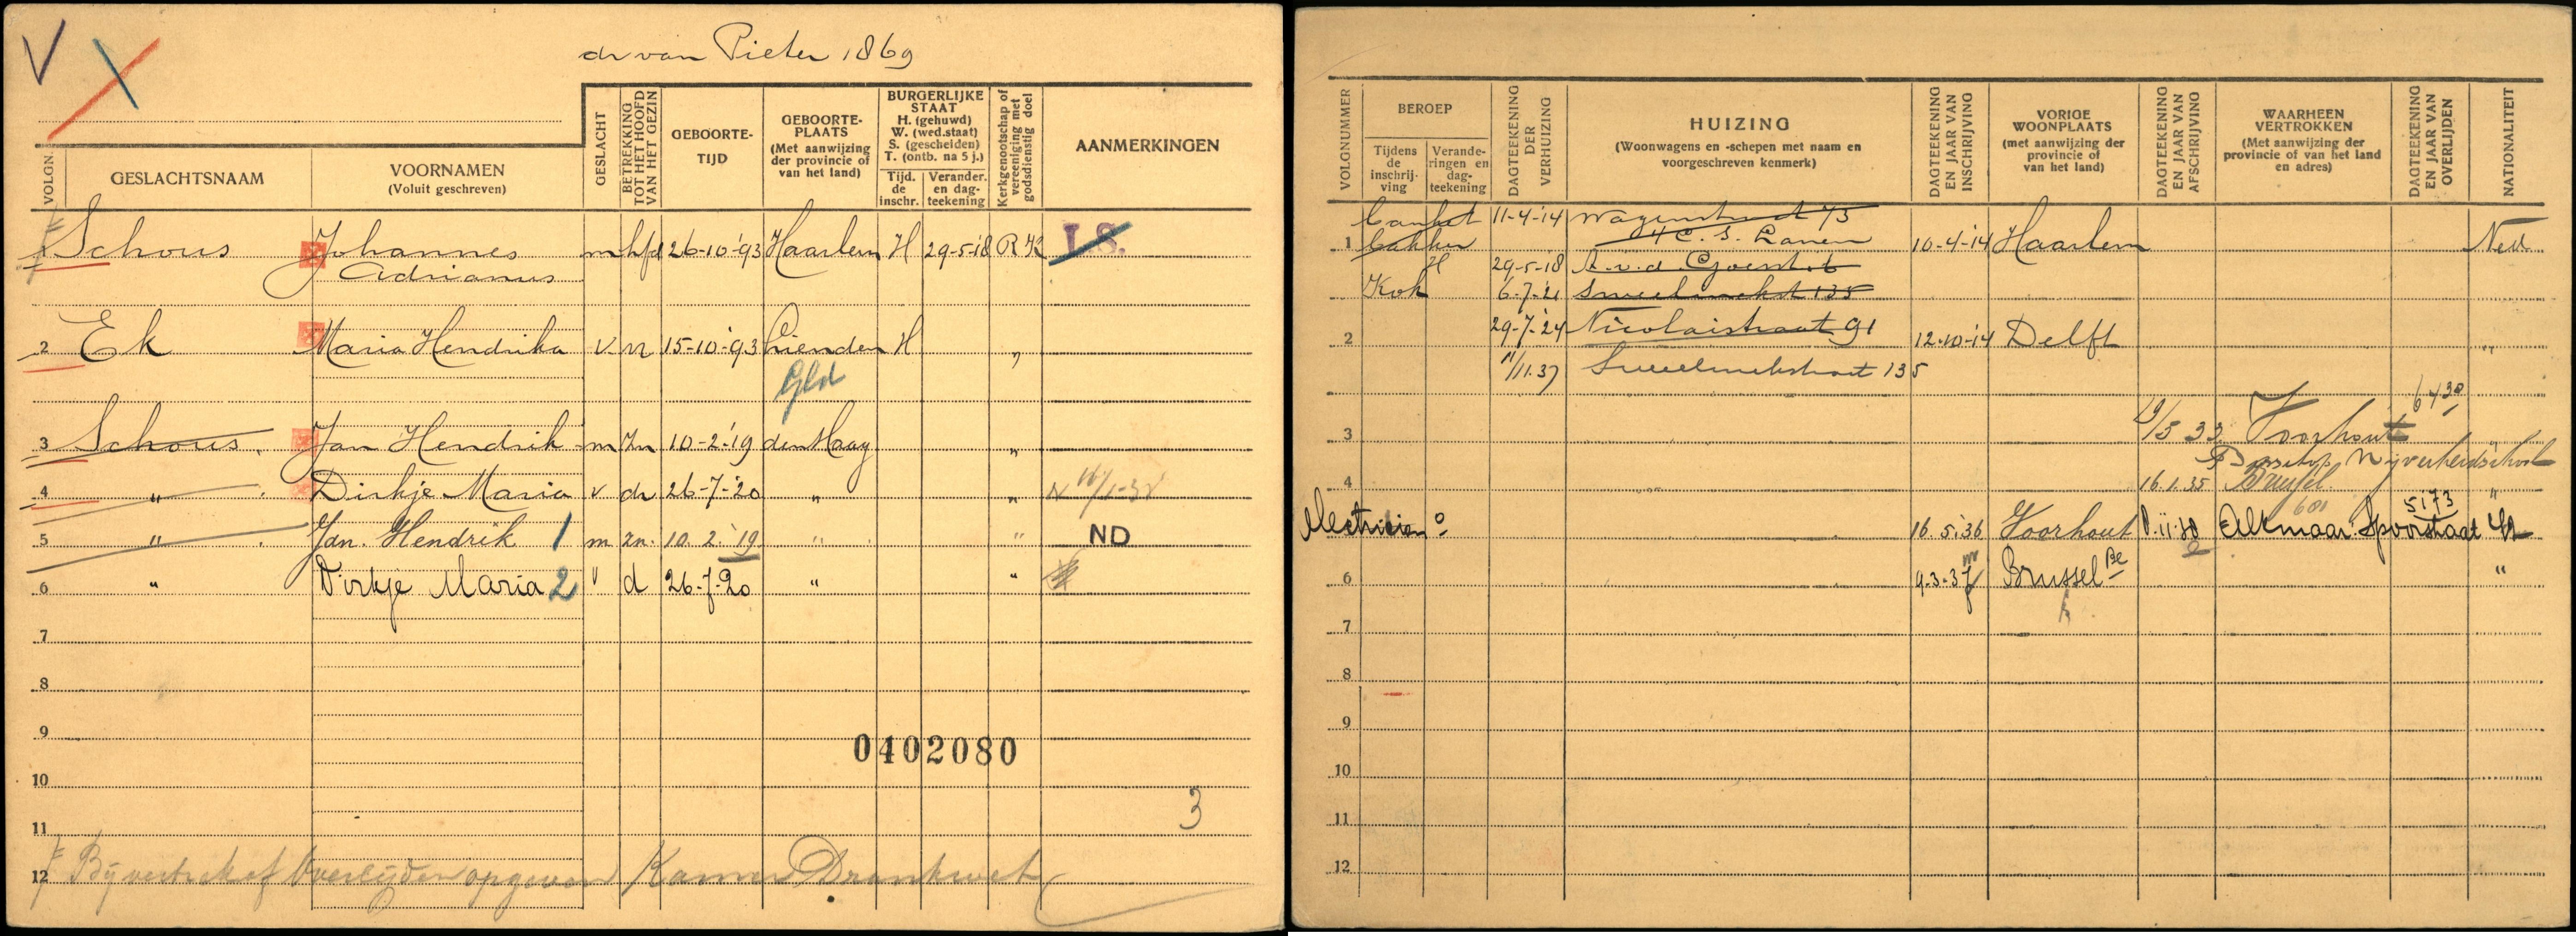 dr van Pieter 1869
VOLGN.
GESLACHTSNAAM
VOORNAMEN
(Voluit geschreven)
GESLACHT
BETREKKING TOT HET HOOFD VAN HET GEZIN
GEBOORTE-
TIJD
GEBOORTE-
PLAATS
(Met aanwijzing
der provincie of
van het land)
BURGERLIJKE
STAAT
H. (gehuwd)
W. (wed.staat)
S. (gescheiden)
T. (ontb. na 5 j.)
Tijd.
de
inschr.
Verander.
en dag-
teekening
Kerkgenootschap of
vereeniging met
godsdienstig doel
AANMERKINGEN
1 Schous Johannes m hfd 26-10-'93 Haarlem H 29-5-'18 R K I.S.
Adrianus
2 Ek Maria Hendrika v. m 15-10-'93 Lienden H "
Gld
3 Schous. Jan Hendrik m zn 10-2-'19 den Haag "
4 " Dirkje Maria v dr 26-7-'20 " "
5 " Jan. Hendrik 1 m zn. 10.2.'19 " " ND
6 " Dirkje Maria 2 v d 26-7-20 " "
7
8
9
0402080
10
3
11
12 Bij vertrek of Overlijden opgeven Kamer Drankwet
VOLGNUMMER
BEROEP
Tijdens
de
inschrij-
ving
Verande-
ringen en
dag-
teekening
DAGTEEKENING
DER
VERHUIZING
HUIZING
(Woonwagens en -schepen met naam en
voorgeschreven kenmerk)
DAGTEEKENING
EN JAAR VAN
INSCHRIJVING
VORIGE
WOONPLAATS
(met aanwijzing der
provincie of
van het land)
DAGTEEKENING
EN JAAR VAN
AFSCHRIJVING
WAARHEEN
VERTROKKEN
(Met aanwijzing der
provincie of van het land
en adres)
DAGTEEKENING
EN JAAR VAN
OVERLIJDEN
NATIONALITEIT
Banket 11-4-'14 Wagenstraat 73
1 bakker 10-4-'14 Haarlem Ned
H 29-5-'18 A.v.d. Goesstr. 6
Kok 6-7-'21 Sweelinckst 135
29-7-'24 Nicolaistraat 91
2 12-10-'14 Delft "
11/11.37 Sweelinckstraat 135
6430
3 19/5 33 Voorhout "
Nijverheidschool
4 16.1.35 Brussel. "
601 5173
5 electricien 16.5.'36 Voorhout Alkmaar. Spoorstraat
6 9-3-37 Brussel Be "
7
8
9
10
11
12